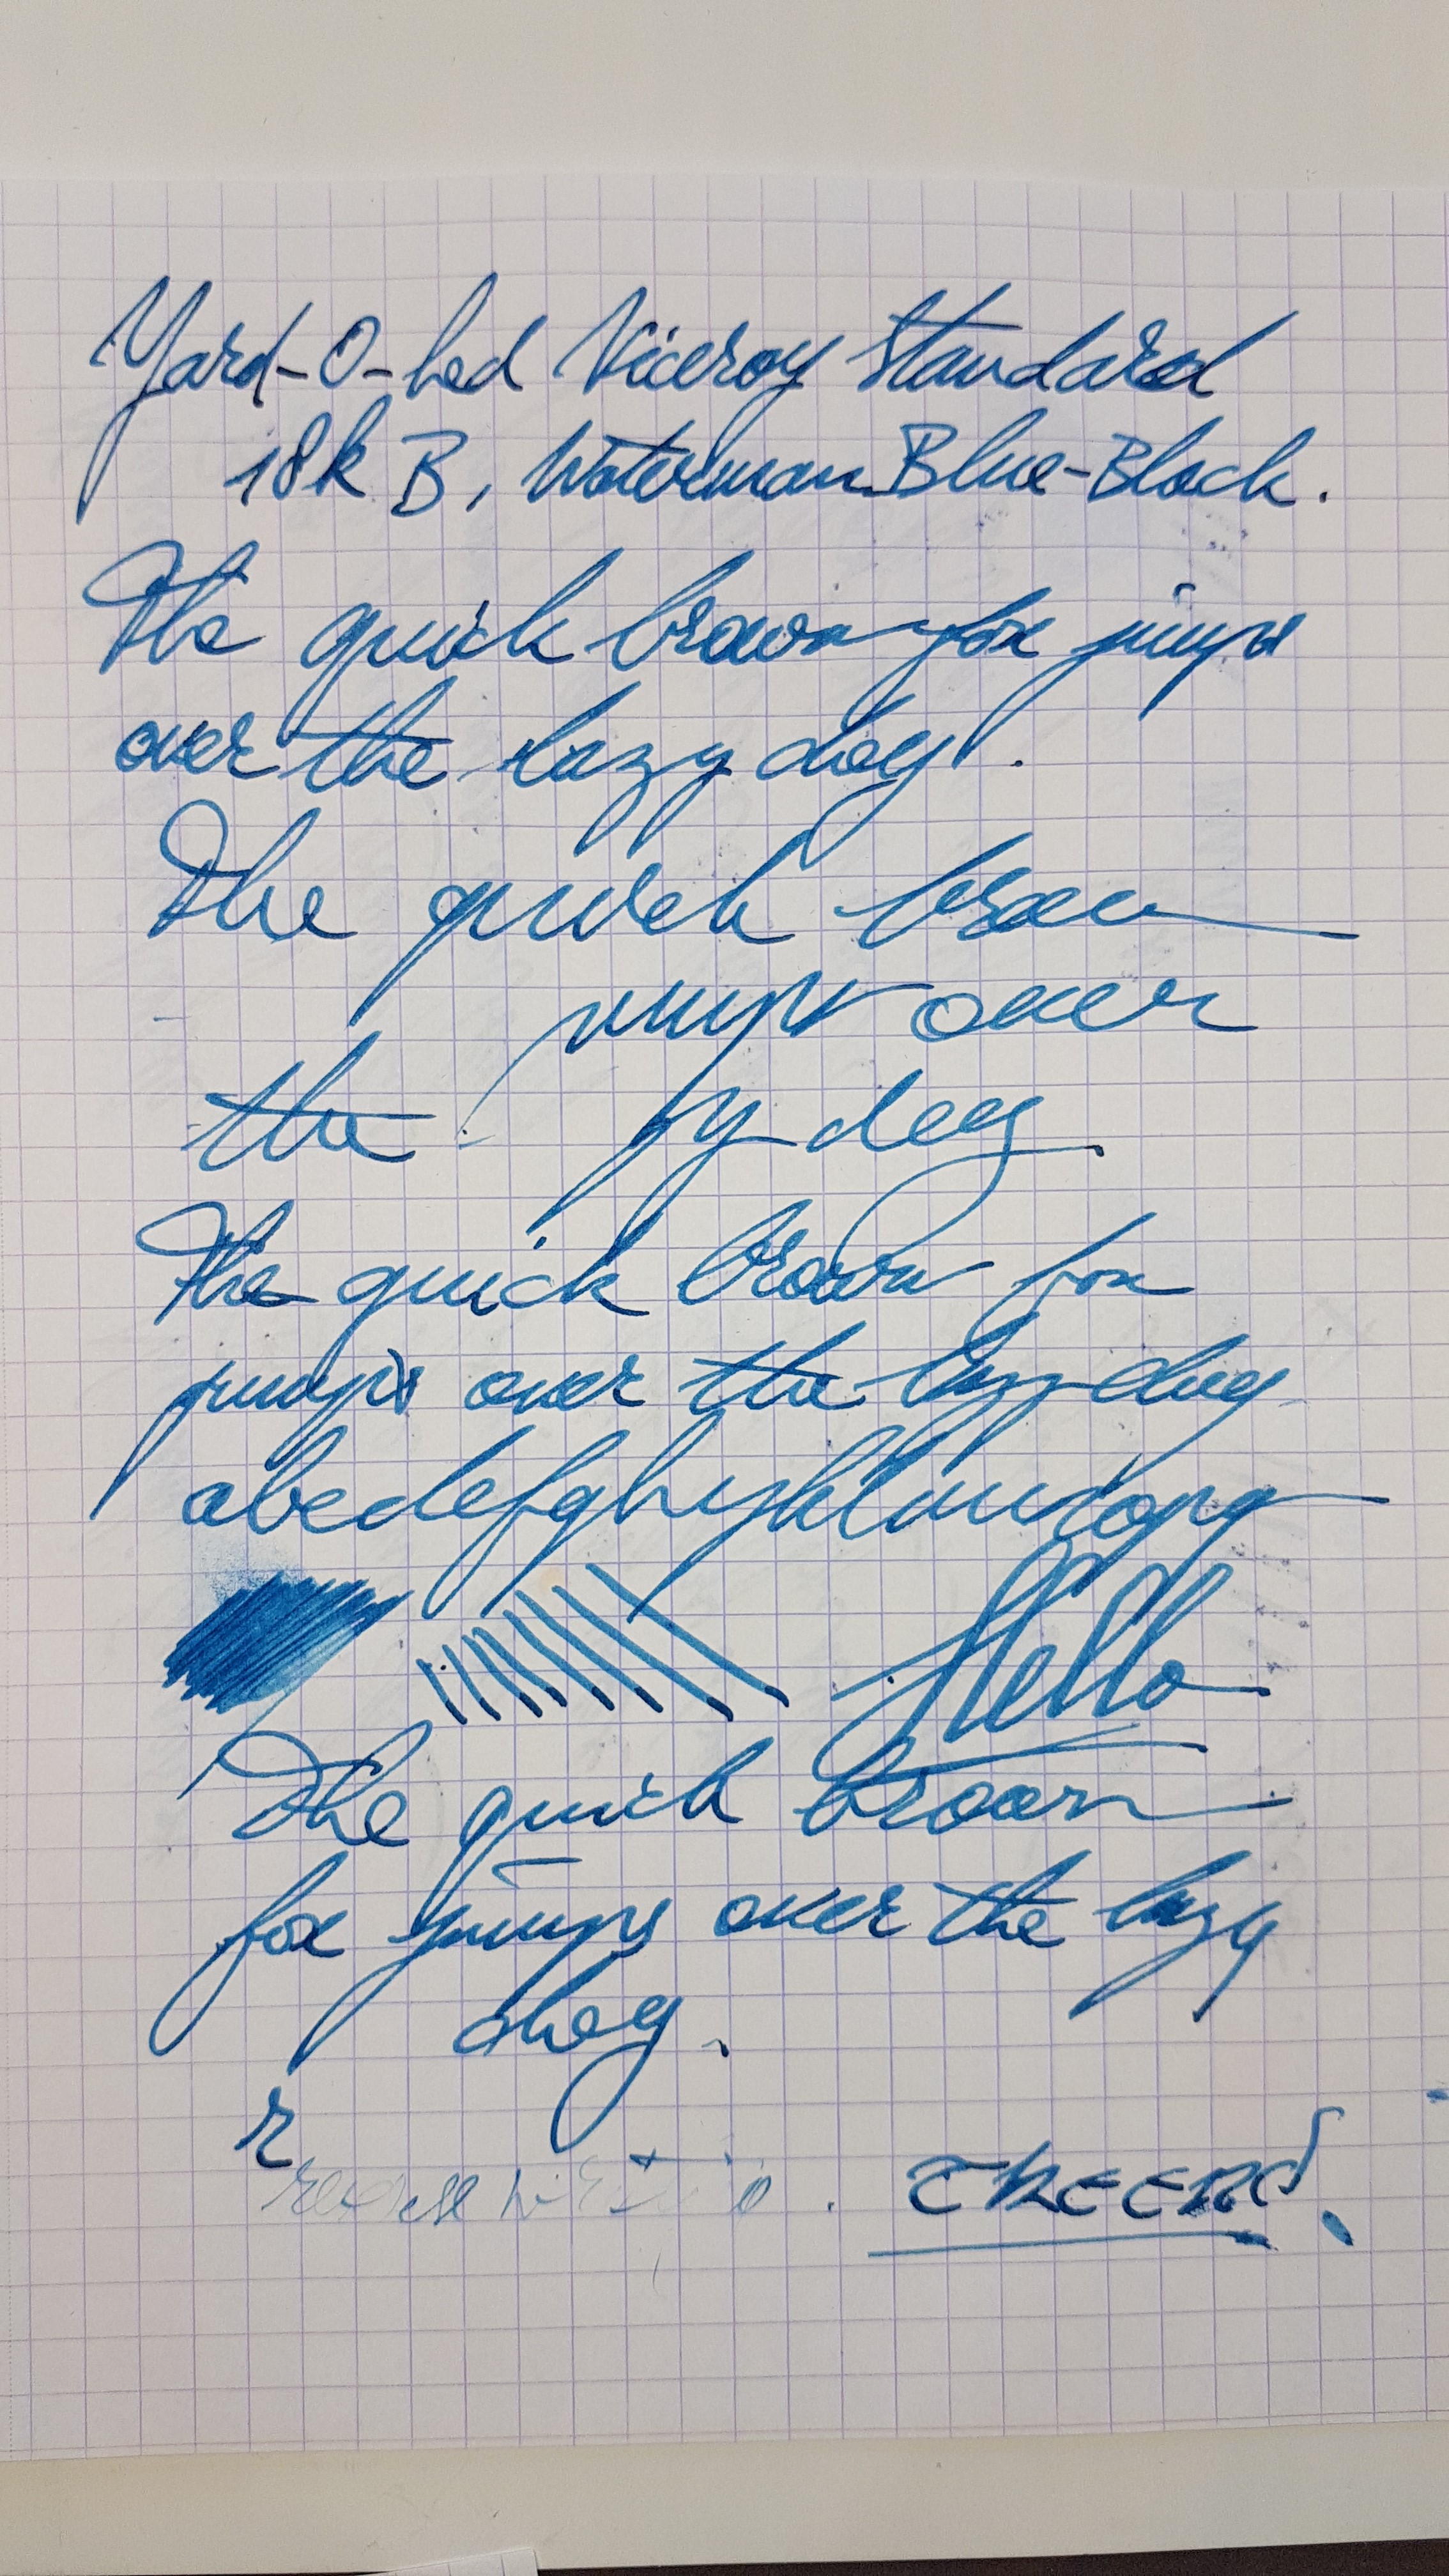 Yard-O-Led Viceroy Standard
18k B, Waterman Blue-Black.
The quick brown fox jumps
over the lazy dog.
The quick brown
jumps over
the zy dog.
The quick brown fox
jumps over the lazy dog
abcdefghijklmnopq
Hello
The quick brown
fox jumps over the lazy
dog.
r
reverse writing. CHEERS!